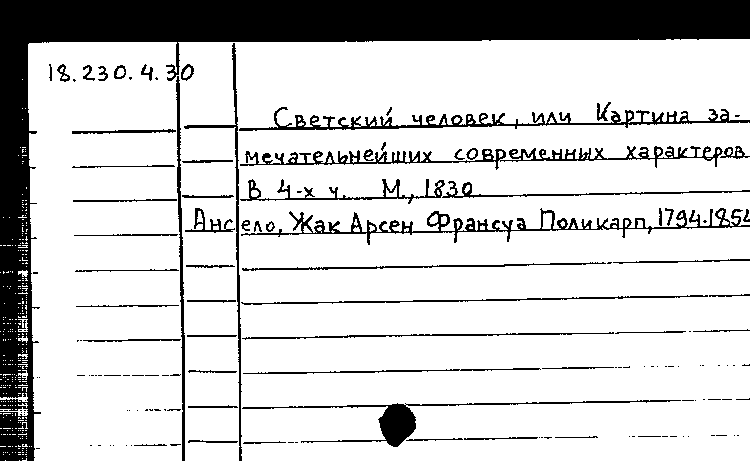 18.230.4.30
Светский человек, или Картина за-
мечательнейших современных характеров
В 4-х ч. М., 1830
Ансело, Жак Арсен Франсуа Поликарп, 1794-1854